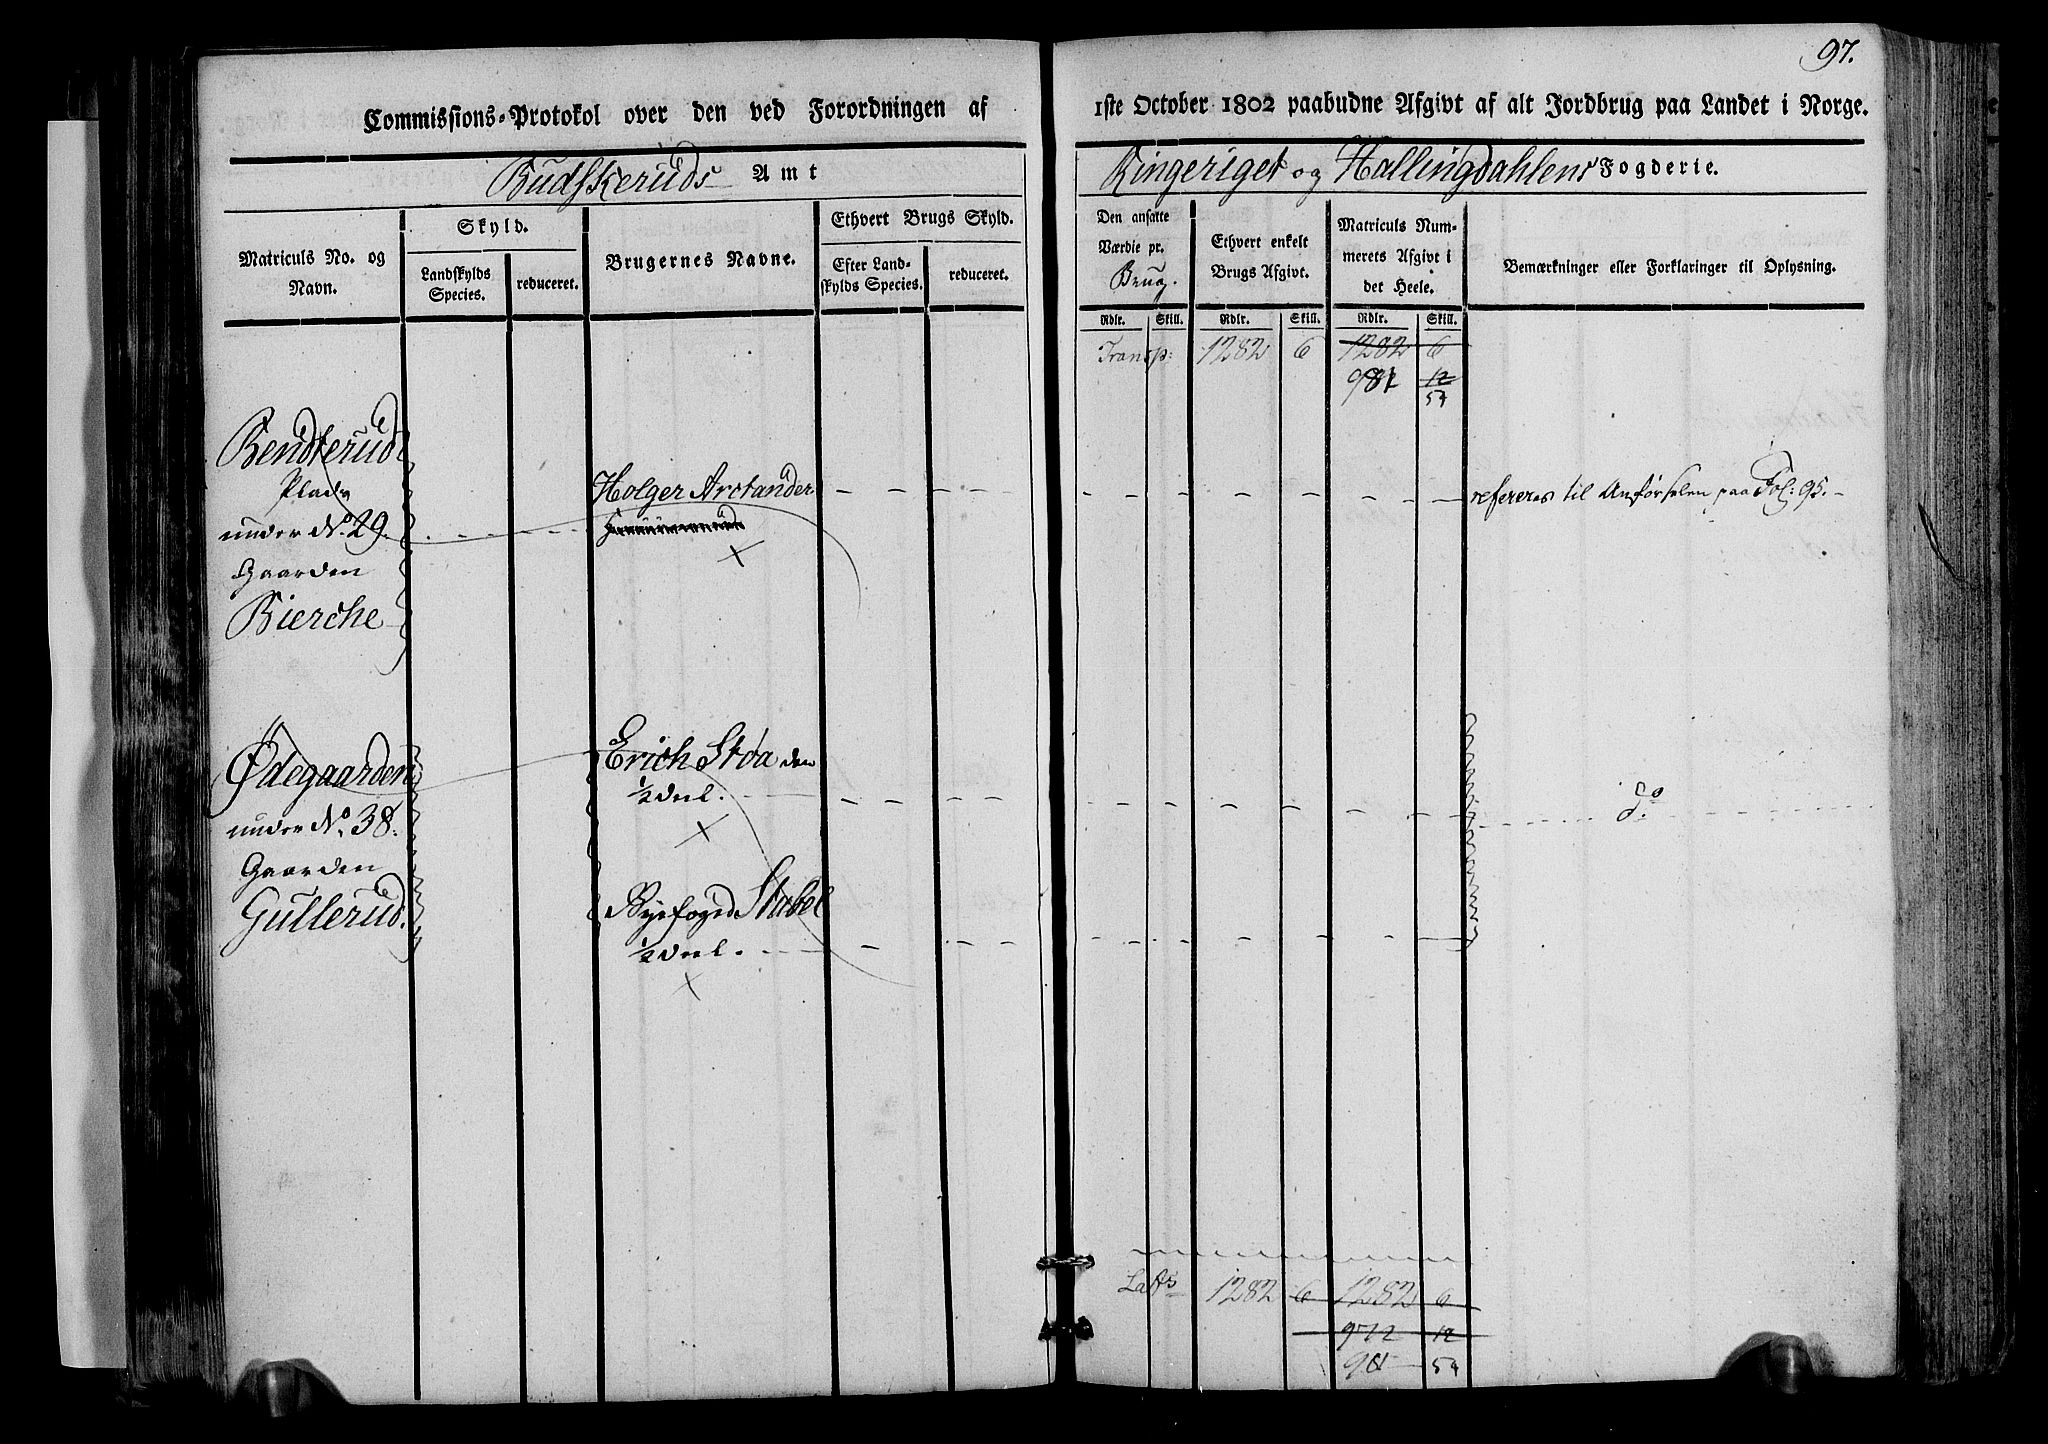 97.
Commissions-Protokol over den ved Forordningen af
1ste October 1802 paabudne Afgivt af alt Jordbrug paa Landet i Norge.
Budskeruds Amt
Ringeriget og Hallingdahlens Fogderie.
Matriculs No. og Navn.
Skyld.
Landskylds Species.
reduceret.
Brugernes Navne.
Ethvert Brugs Skyld.
Efter Landskylds Species.
reduceret.
Den ansatte Værdie pr. Brug.
Ethvert enkelt Brugs Afgivt.
Matriculs Nummerets Afgivt i det Heele.
Bemærkninger eller Forklaringer til Oplysning.
Rdlr. Skill. Rdlr. Skill. Rdlr. Skill.
Transp: 1282 6 1282 6
981 12
54
Bendterud
Plads
under No. 29.
Gaarden
Bierche
Holger Arctander
refereres til Anførselen paa Fol: 95.
Ødegaarden
under No. 38.
Gaarden
Gullerud.
Erich Støa den
1/2 Deel.
Do
Byefoged Stabel
1/2 Deel.
Lats 1282 6 1282 6
972 12
54